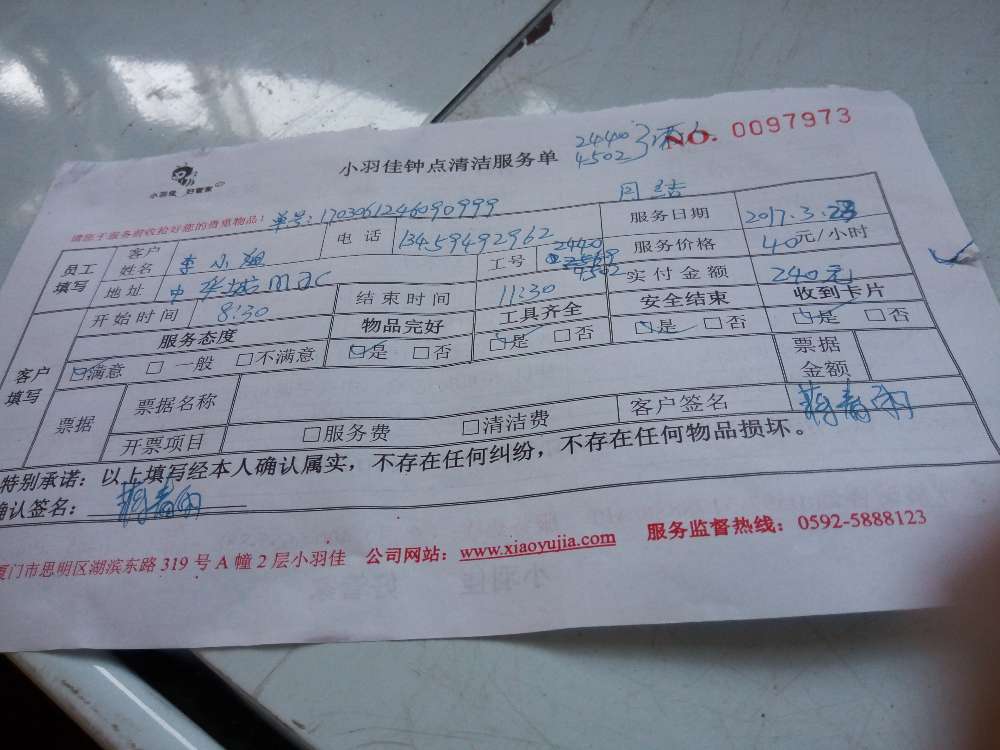 NO. 0097973
24400
4502
小羽佳钟点清洁服务单
小羽佳 好管家
月结
请您于服务前收拾好您的贵重物品！
单号：1703061246090999
员工填写 客户姓名 李小 电话 13459492962 服务日期 2017.3.28
地址 中 MAC 工号 24400 4502 服务价格 40元/小时
开始时间 8:30 结束时间 11:30 实付金额 240元
客户填写 服务态度 物品完好 工具齐全 安全结束 收到卡片
满意 一般 不满意 是 否 是 否 是 否 是 否
票据 票据名称 票据金额
开票项目 服务费 清洁费 客户签名
特别承诺：以上填写经本人确认属实，不存在任何纠纷，不存在任何物品损坏。
确认签名：
厦门市思明区湖滨东路 319 号 A 幢 2 层小羽佳 公司网站：www.xiaoyujia.com 服务监督热线：0592-5888123